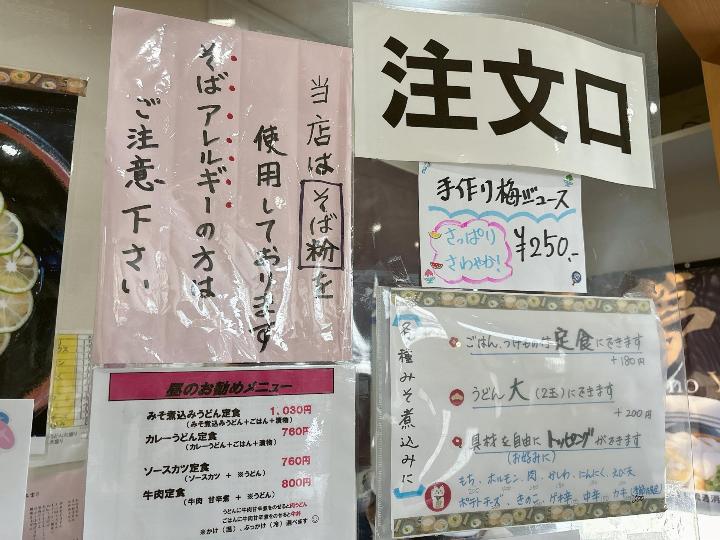 当店はそば粉を
使用しております
そばアレルギーの方は
ご注意下さい
注文口
手作り梅ジュース
さっぱり
さわやか!
¥250.-
昼のお勧めメニュー
みそ煮込みうどん定食 1,030円
(みそ煮込みうどん+ごはん+漬物)
カレーうどん定食 760円
(カレーうどん+ごはん+漬物)
ソースカツ定食 760円
(ソースカツ + ※うどん)
牛肉定食 800円
(牛肉 甘辛煮 + ※うどん)
うどんに牛肉甘辛煮をのせると肉うどん
ごはんに牛肉甘辛煮をのせると牛丼
※かけ(温)、ぶっかけ(冷)選べます
各種みそ煮込みに
ごはん、つけものは定食にできます
+180円
うどん大(2玉)にできます
+200円
具材を自由にトッピングができます
(お好みに)
もち、ホルモン、肉、かしわ、にんにく、えび天
ポテトチーズ、きのこ、ゲソ辛、中華、カキ